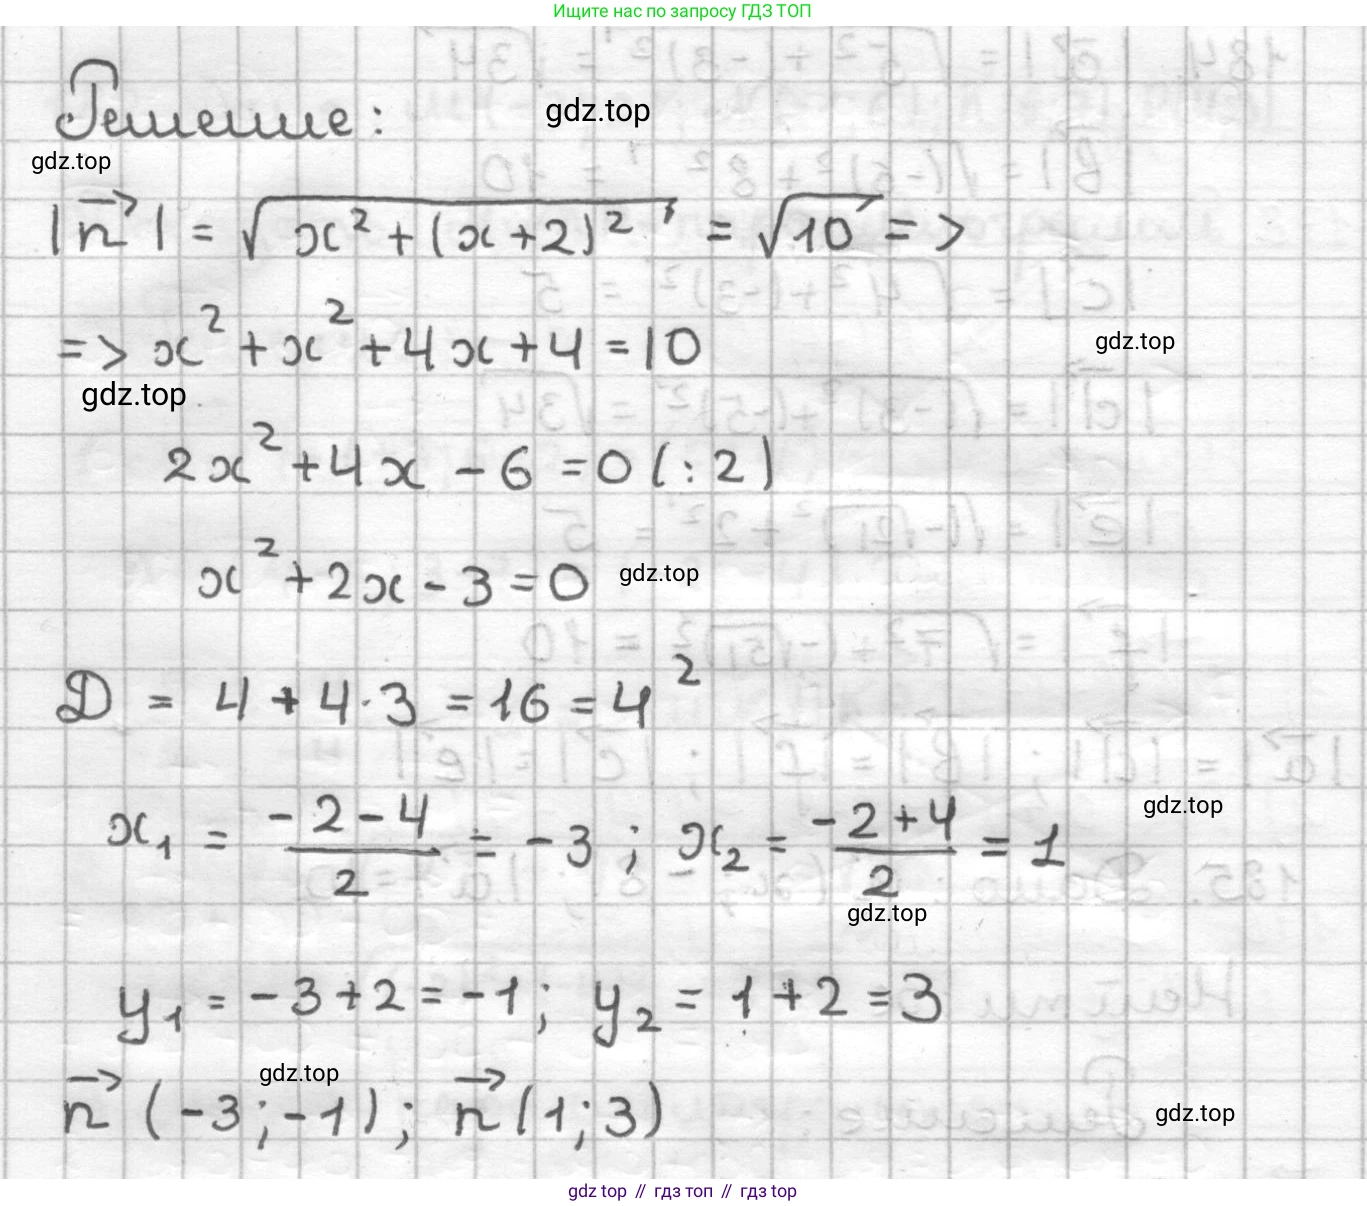 Ищите нас по запросу ГДЗ ТОП
Решение:
gdz.top
gdz.top
|n⃗| = √(x² + (x+2)²) = √10 =>
=> x² + x² + 4x + 4 = 10
gdz.top
gdz.top
2x² + 4x - 6 = 0 (:2)
x² + 2x - 3 = 0
gdz.top
D = 4 + 4·3 = 16 = 4²
x₁ = (-2-4)/2 = -3; x₂ = (-2+4)/2 = 1
gdz.top
gdz.top
y₁ = -3+2 = -1; y₂ = 1+2 = 3
gdz.top
n⃗ (-3; -1); n⃗ (1; 3)
gdz.top
gdz top // гдз топ // gdz top